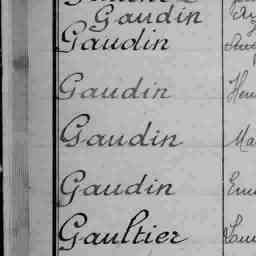 Gaudin
Gaudin
Gaudin
Gaudin
Gaudin
Gaultier